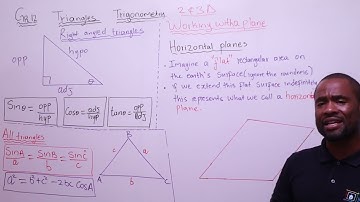 GR12 Triangles Trigonometry 2 & 3D
Right angled triangles
hypo
opp
θ
adj
Sinθ = opp/hyp
Cosθ = adj/hyp
tanθ = opp/adj
All triangles
SinA/a = SinB/b = SinC/c
a² = b² + c² - 2bc CosA
B
c
a
A
b
C
Working with a plane
Horizontal planes
• Imagine a "flat" rectangular area on
the earth's surface (ignore the
• If we extend this flat surface indefinitely
this represents what we call a horizontal
plane.